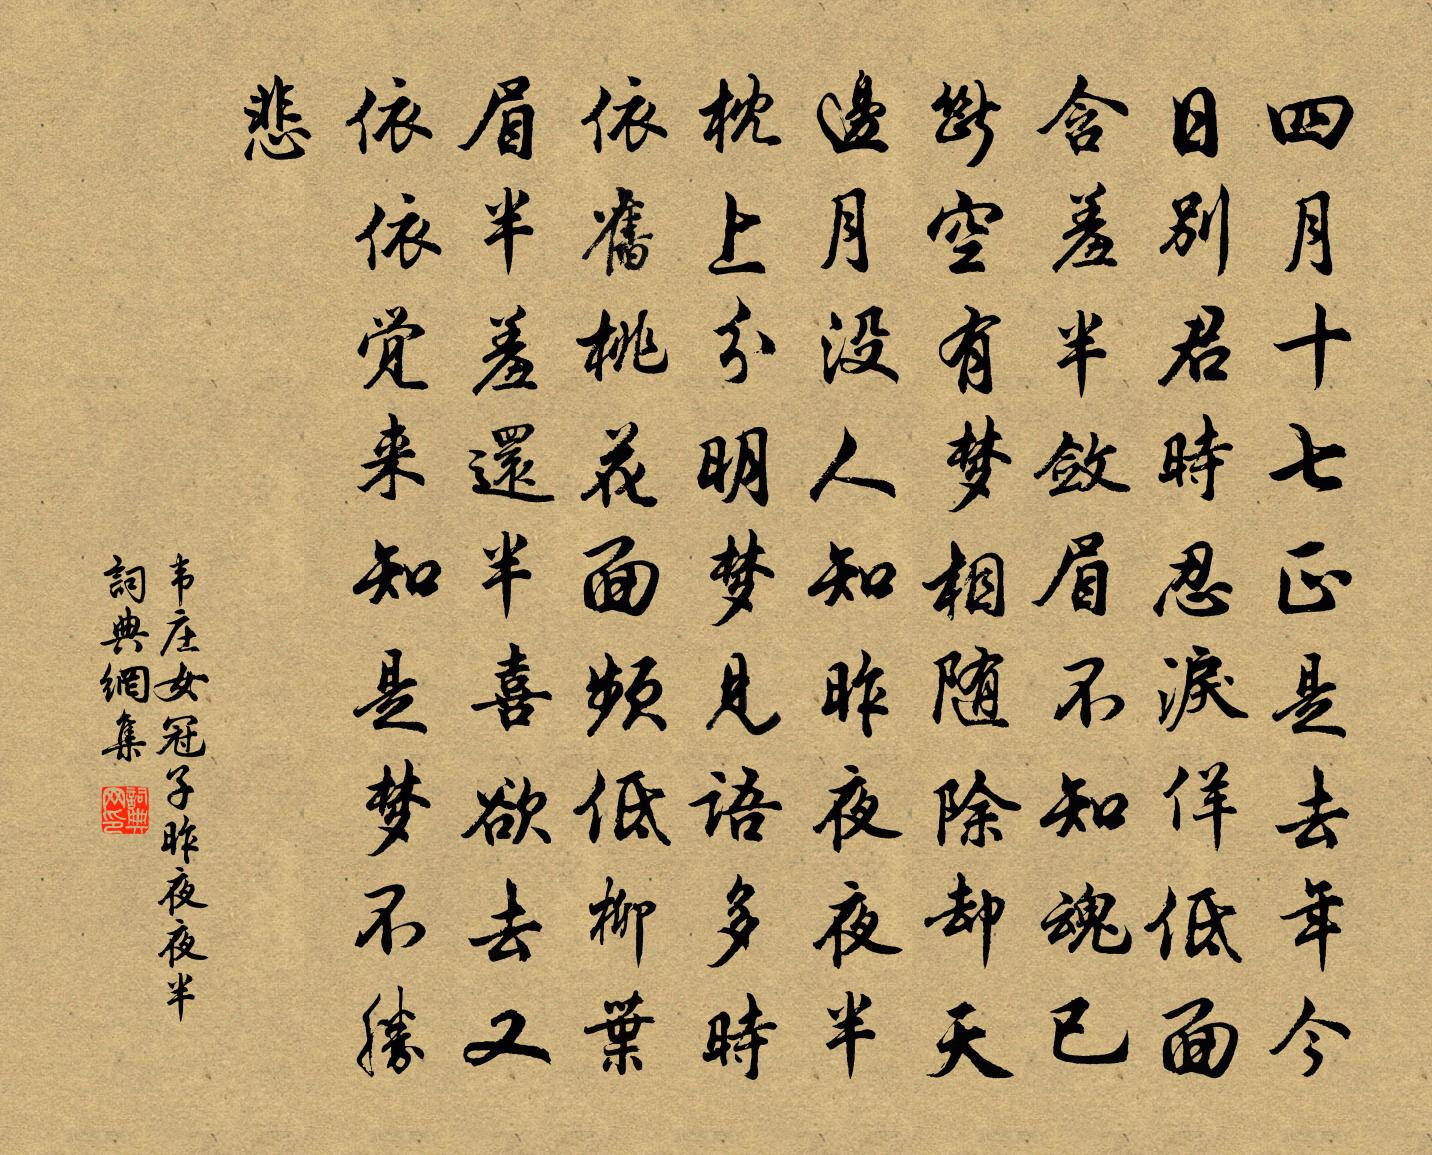 四月十七正是去年今
日别君時忍淚佯低面
含羞半斂眉不知魂已
斷空有梦相随除却天
邊月没人知昨夜夜半
枕上分明梦見语多時
依舊桃花面频低柳葉
眉半羞還半喜欲去又
依依觉来知是梦不勝
悲
韦庄女冠子昨夜夜半
詞典網集
詞典
网印